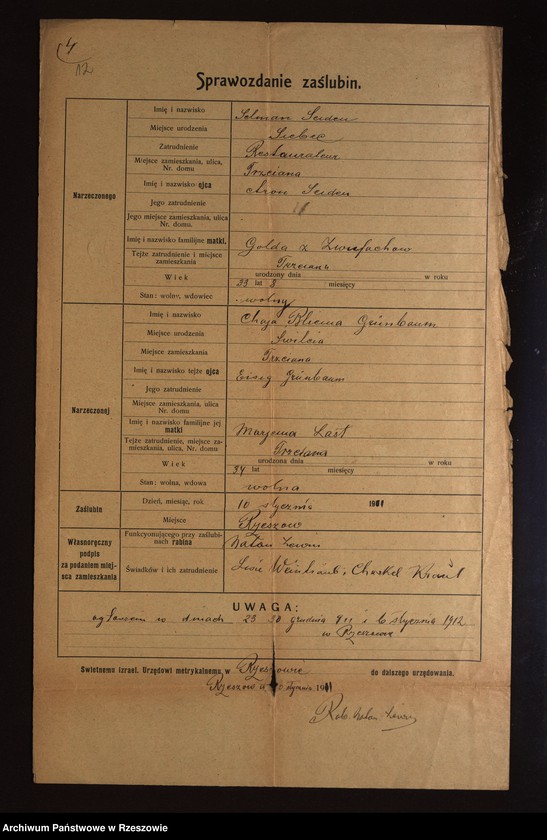 4
12
Sprawozdanie zaślubin.
Narzeczonego
Imię i nazwisko
Selman Seiden
Miejsce urodzenia
Zatrudnienie
Restaurateur
Miejsce zamieszkania, ulica, Nr. domu
Trzciana
Imię i nazwisko ojca
Aron Seiden
Jego zatrudnienie
Jego miejsce zamieszkania, ulica Nr. domu.
Imię i nazwisko familijne matki,
Golda z
Tejże zatrudnienie i miejsce zamieszkania
Trzciana
Wiek
urodzony dnia w roku
39 lat 8 miesięcy
Stan: wolny, wdowiec
wolny
Narzeczonej
Imię i nazwisko
Chaja Bluma Grünbaum
Miejsce urodzenia
Świlcza
Miejsce zamieszkania
Trzciana
Imię i nazwisko tejże ojca
Eisig Grünbaum
Jego zatrudnienie
Miejsce zamieszkania, ulica Nr. domu
Imię i nazwisko familijne jej matki
Marjema Last
Tejże zatrudnienie, miejsce zamieszkania, ulica, Nr. domu
Trzciana
Wiek
urodzona dnia w roku
34 lat miesięcy
Stan: wolna, wdowa
wolna
Zaślubin
Dzień, miesiąc, rok
10 stycznia 1911
Miejsce
Rzeszow
Własnoręczny podpis za podaniem miejsca zamieszkania
Funkcyonującego przy zaślubinach rabina
Natan Lewin
Świadków i ich zatrudnienie
Weintraub i Chaskel Kraut
UWAGA:
ogłoszeni w dniach 23 30 grudnia 911 i 6 stycznia 1912
w Rzeszowie
Świetnemu izrael. Urzędowi metrykalnemu w Rzeszowie do dalszego urzędowania.
Rzeszow stycznia 1911
Rab. Natan Lewin
Archiwum Państwowe w Rzeszowie